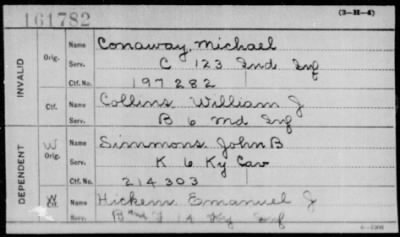 161782 (3-H-4)
INVALID
Orig. Name Conaway, Michael
Serv. C 123 Ind Inf
Ctf. No. 197282
Ctf. Name Collins William J
Serv. B 6 Md Inf
DEPENDENT
W Orig. Name Simmons John B
Serv. K 6 Ky Cav
Ctf. No. 214303
W Ctf. Name Emanuel J
Serv. B 14 Ky Inf